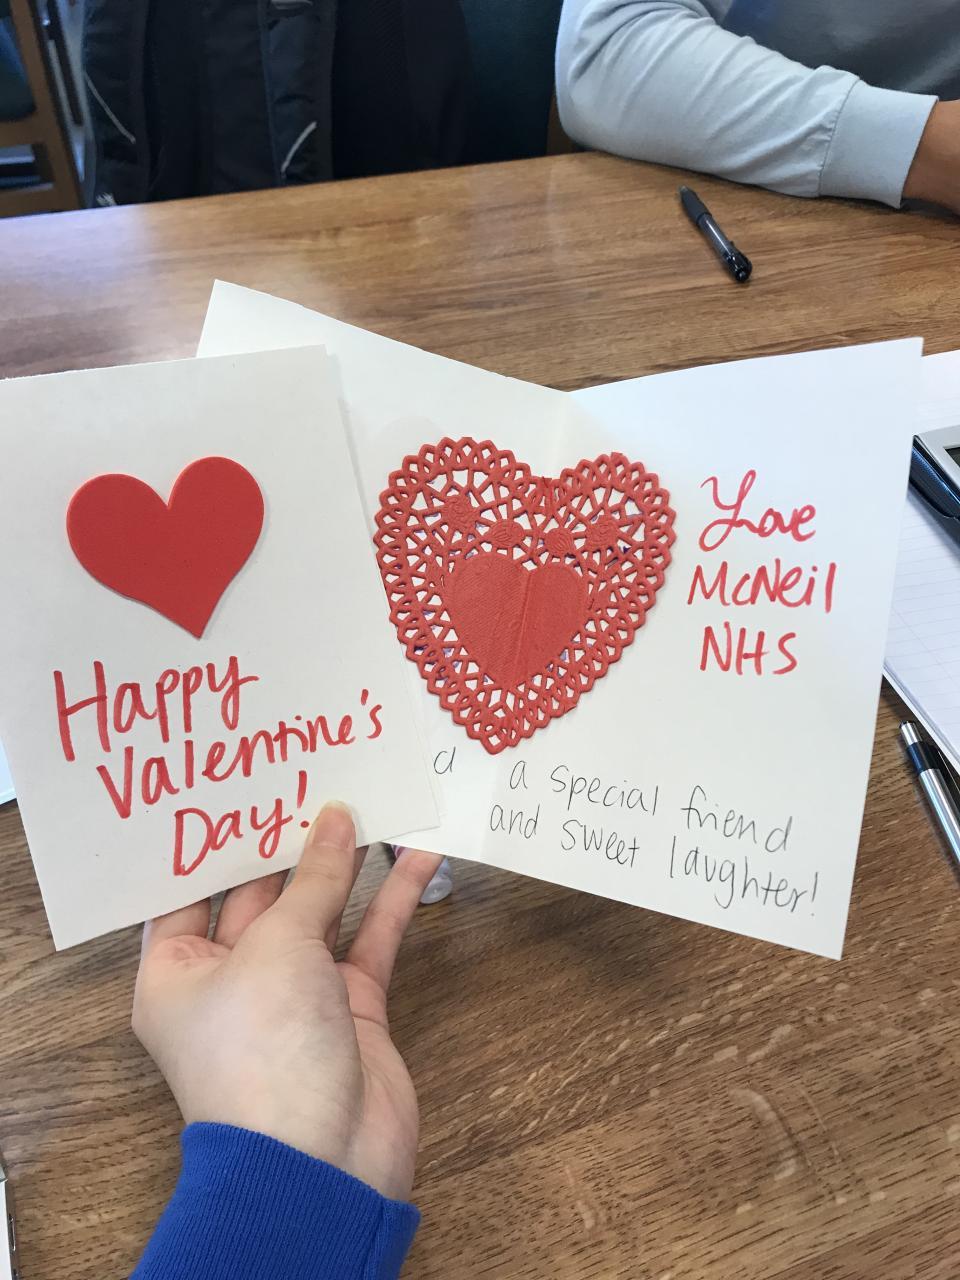 Happy
Valentine's
Day!
Love
McNeil
NHS
d a special friend
and sweet laughter!